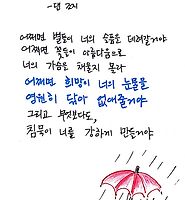 어쩌면 별들이 너의 슬픔을 데려갈거야
어쩌면 꽃들이 아름다움으로
너의 가슴을 채울지 몰라
어쩌면 희망이 너의 눈물을
영원히 닦아 없애줄거야
그리고 무엇보다도,
침묵이 너를 강하게 만들거야